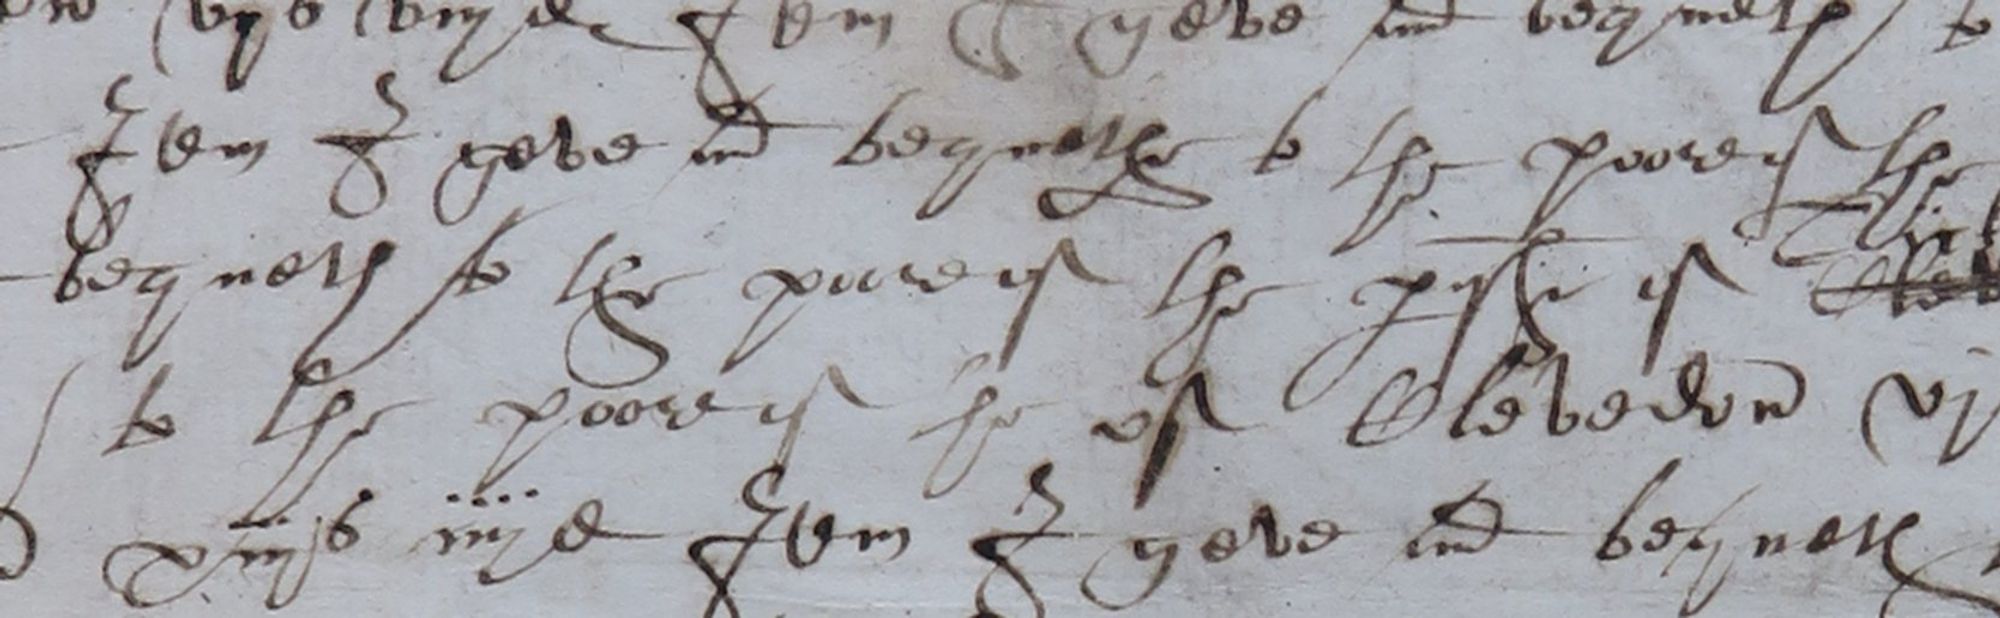 vjs viijd Item I geve and bequeth to
Item I geve and bequethe to the poore of the
bequeth to the poore of the pishe of
to the poore of he of Clevedon vj
xiijs iiijd Item I geve and bequeth